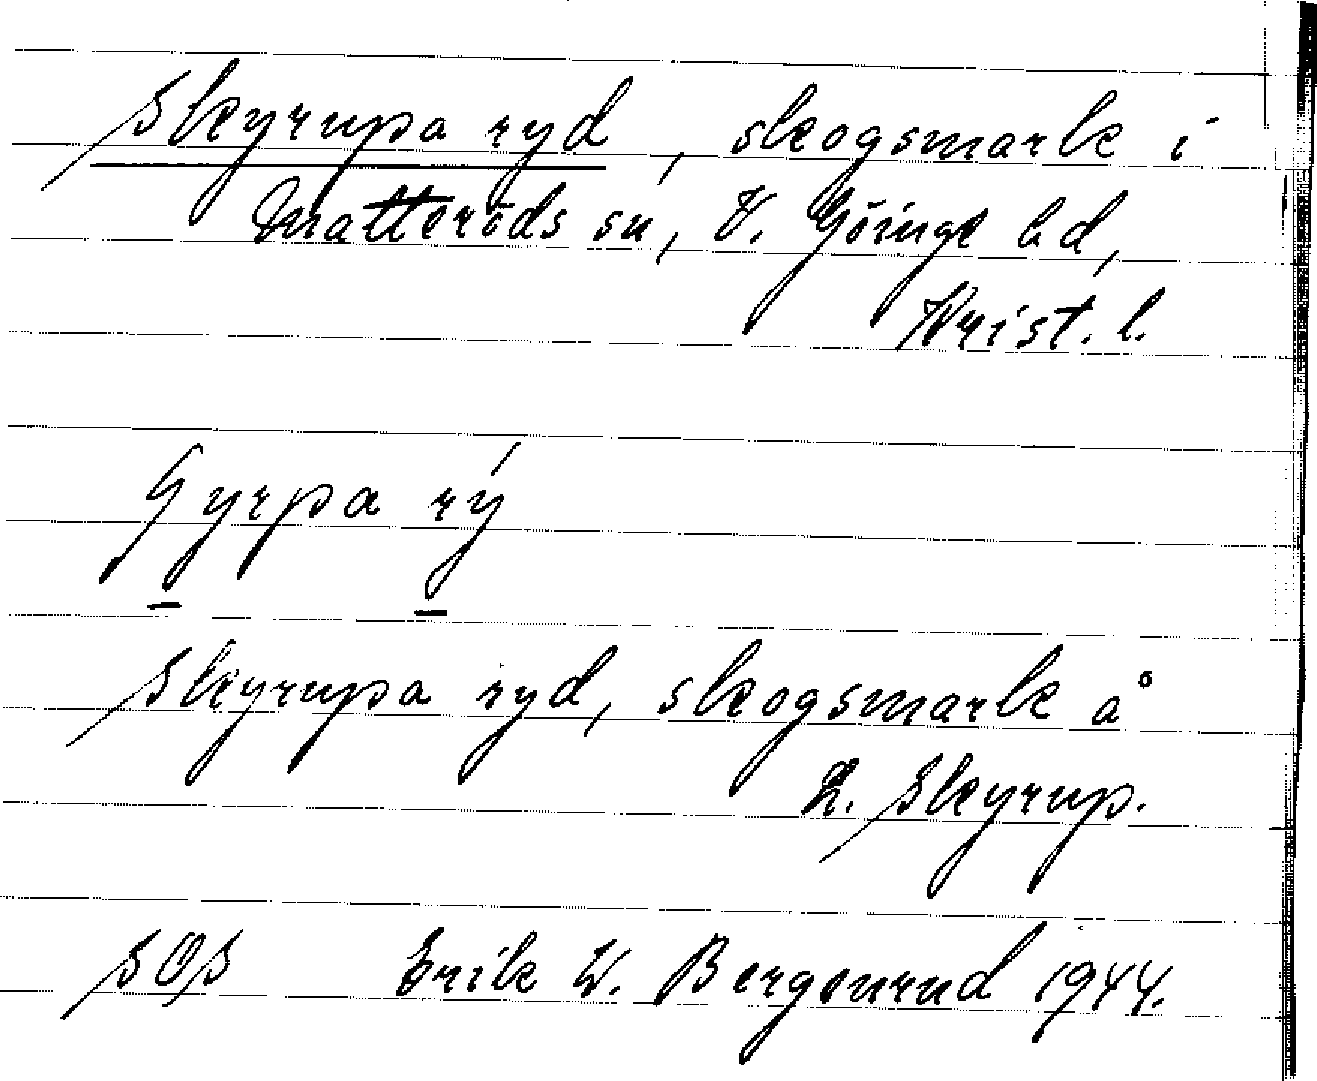 Skyrupa ryd, skogsmark i
Matteröds sn, V. Göinge hd,
Krist. l.
Gyrpa rý
Skyrupa ryd, skogsmark å
L. Skyrup.
SOS Erik W. Bergenrud 1944.